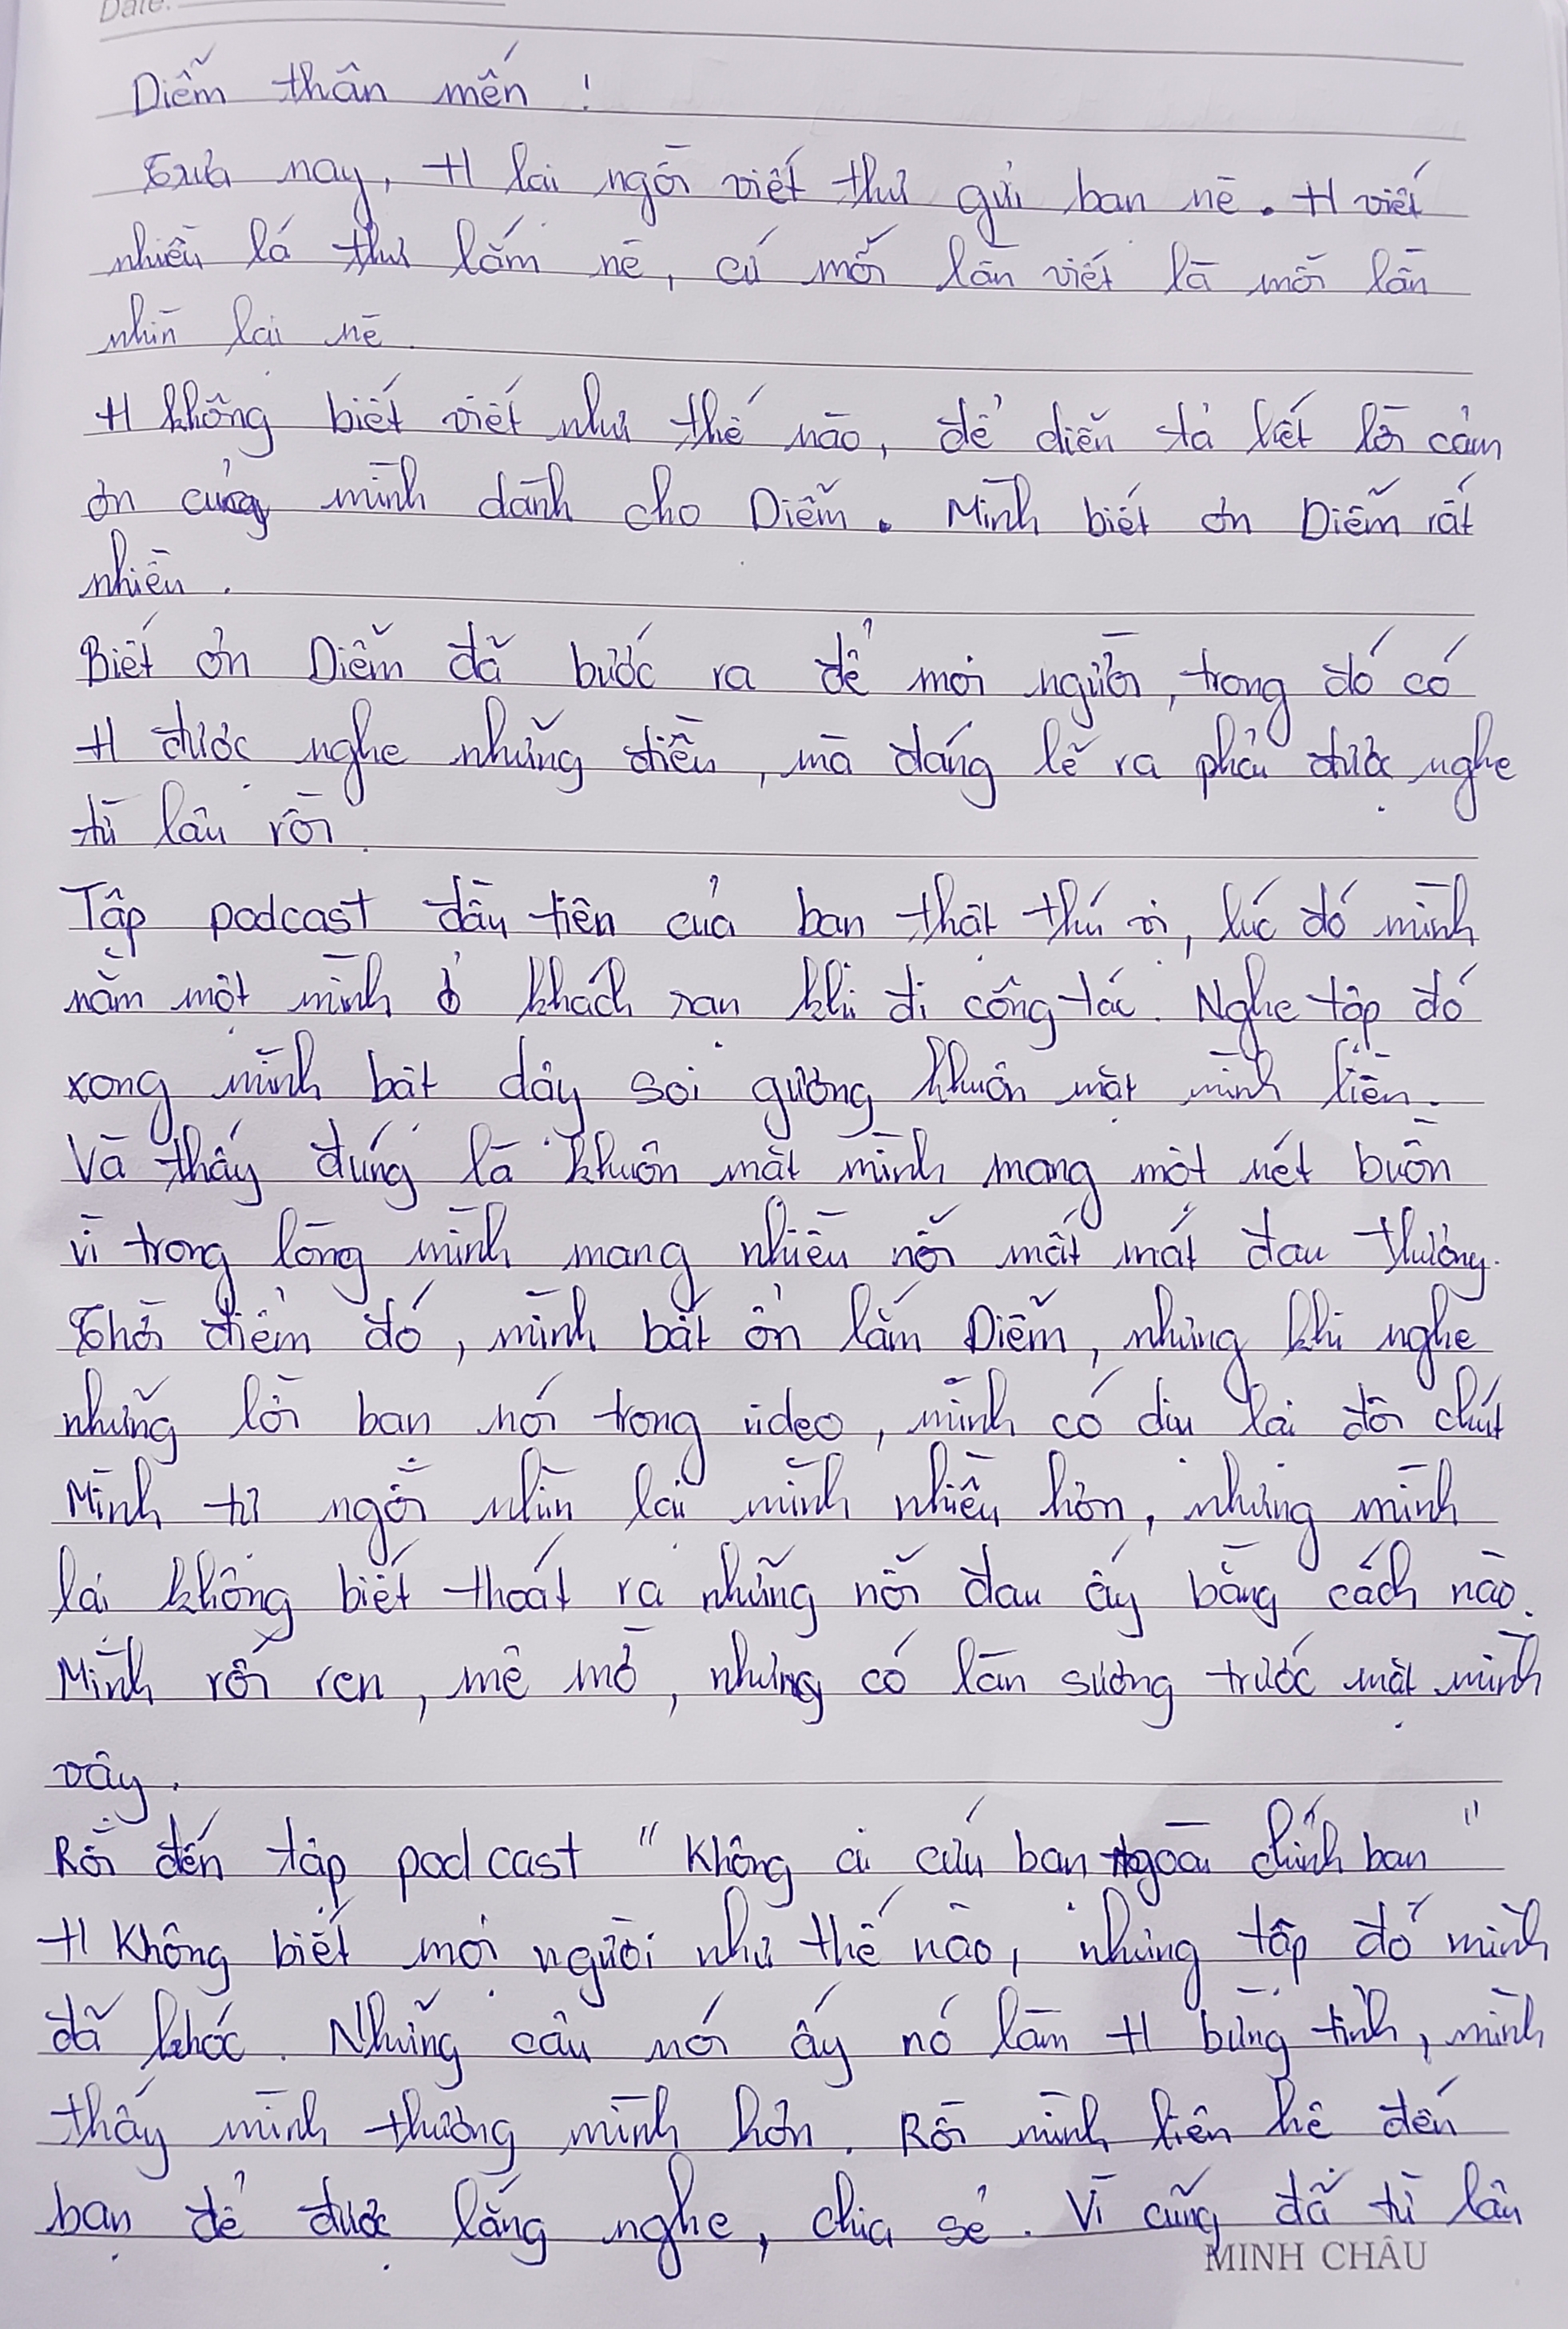 Date:
Diễm thân mến !
Trưa nay, H lại ngồi viết thư gửi bạn nè. H viết
nhiều lá thư lắm nè, cứ mỗi lần viết là mỗi lần
nhìn lại nè.
H không biết viết như thế nào, để diễn tả hết lời cảm
ơn của mình dành cho Diễm. Mình biết ơn Diễm rất
nhiều.
Biết ơn Diễm đã bước ra để mọi người, trong đó có
H được nghe những điều, mà đáng lẽ ra phải được nghe
từ lâu rồi.
Tập podcast đầu tiên của bạn thật thú vị, lúc đó mình
nằm một mình ở khách sạn khi đi công tác. Nghe tập đó
xong mình bật dậy soi gương khuôn mặt mình liền.
Và thấy đúng là khuôn mặt mình mang một nét buồn
vì trong lòng mình mang nhiều nỗi mất mát đau thương.
Thời điểm đó, mình bất ổn lắm Diễm, nhưng khi nghe
những lời bạn nói trong video, mình có dịu lại đôi chút
Mình tự ngồi nhìn lại mình nhiều hơn, nhưng mình
lại không biết thoát ra những nỗi đau ấy bằng cách nào.
Mình rối ren, mê mờ, nhưng có làn sương trước mặt mình
vậy.
Rồi đến tập podcast "Không ai cứu bạn ngoài chính bạn"
H không biết mọi người như thế nào, nhưng tập đó mình
đã khóc. Những câu nói ấy nó làm H bừng tỉnh, mình
thấy mình thương mình hơn. Rồi mình liên hệ đến
bạn để được lắng nghe, chia sẻ. Vì cũng đã từ lâu
MINH CHÂU